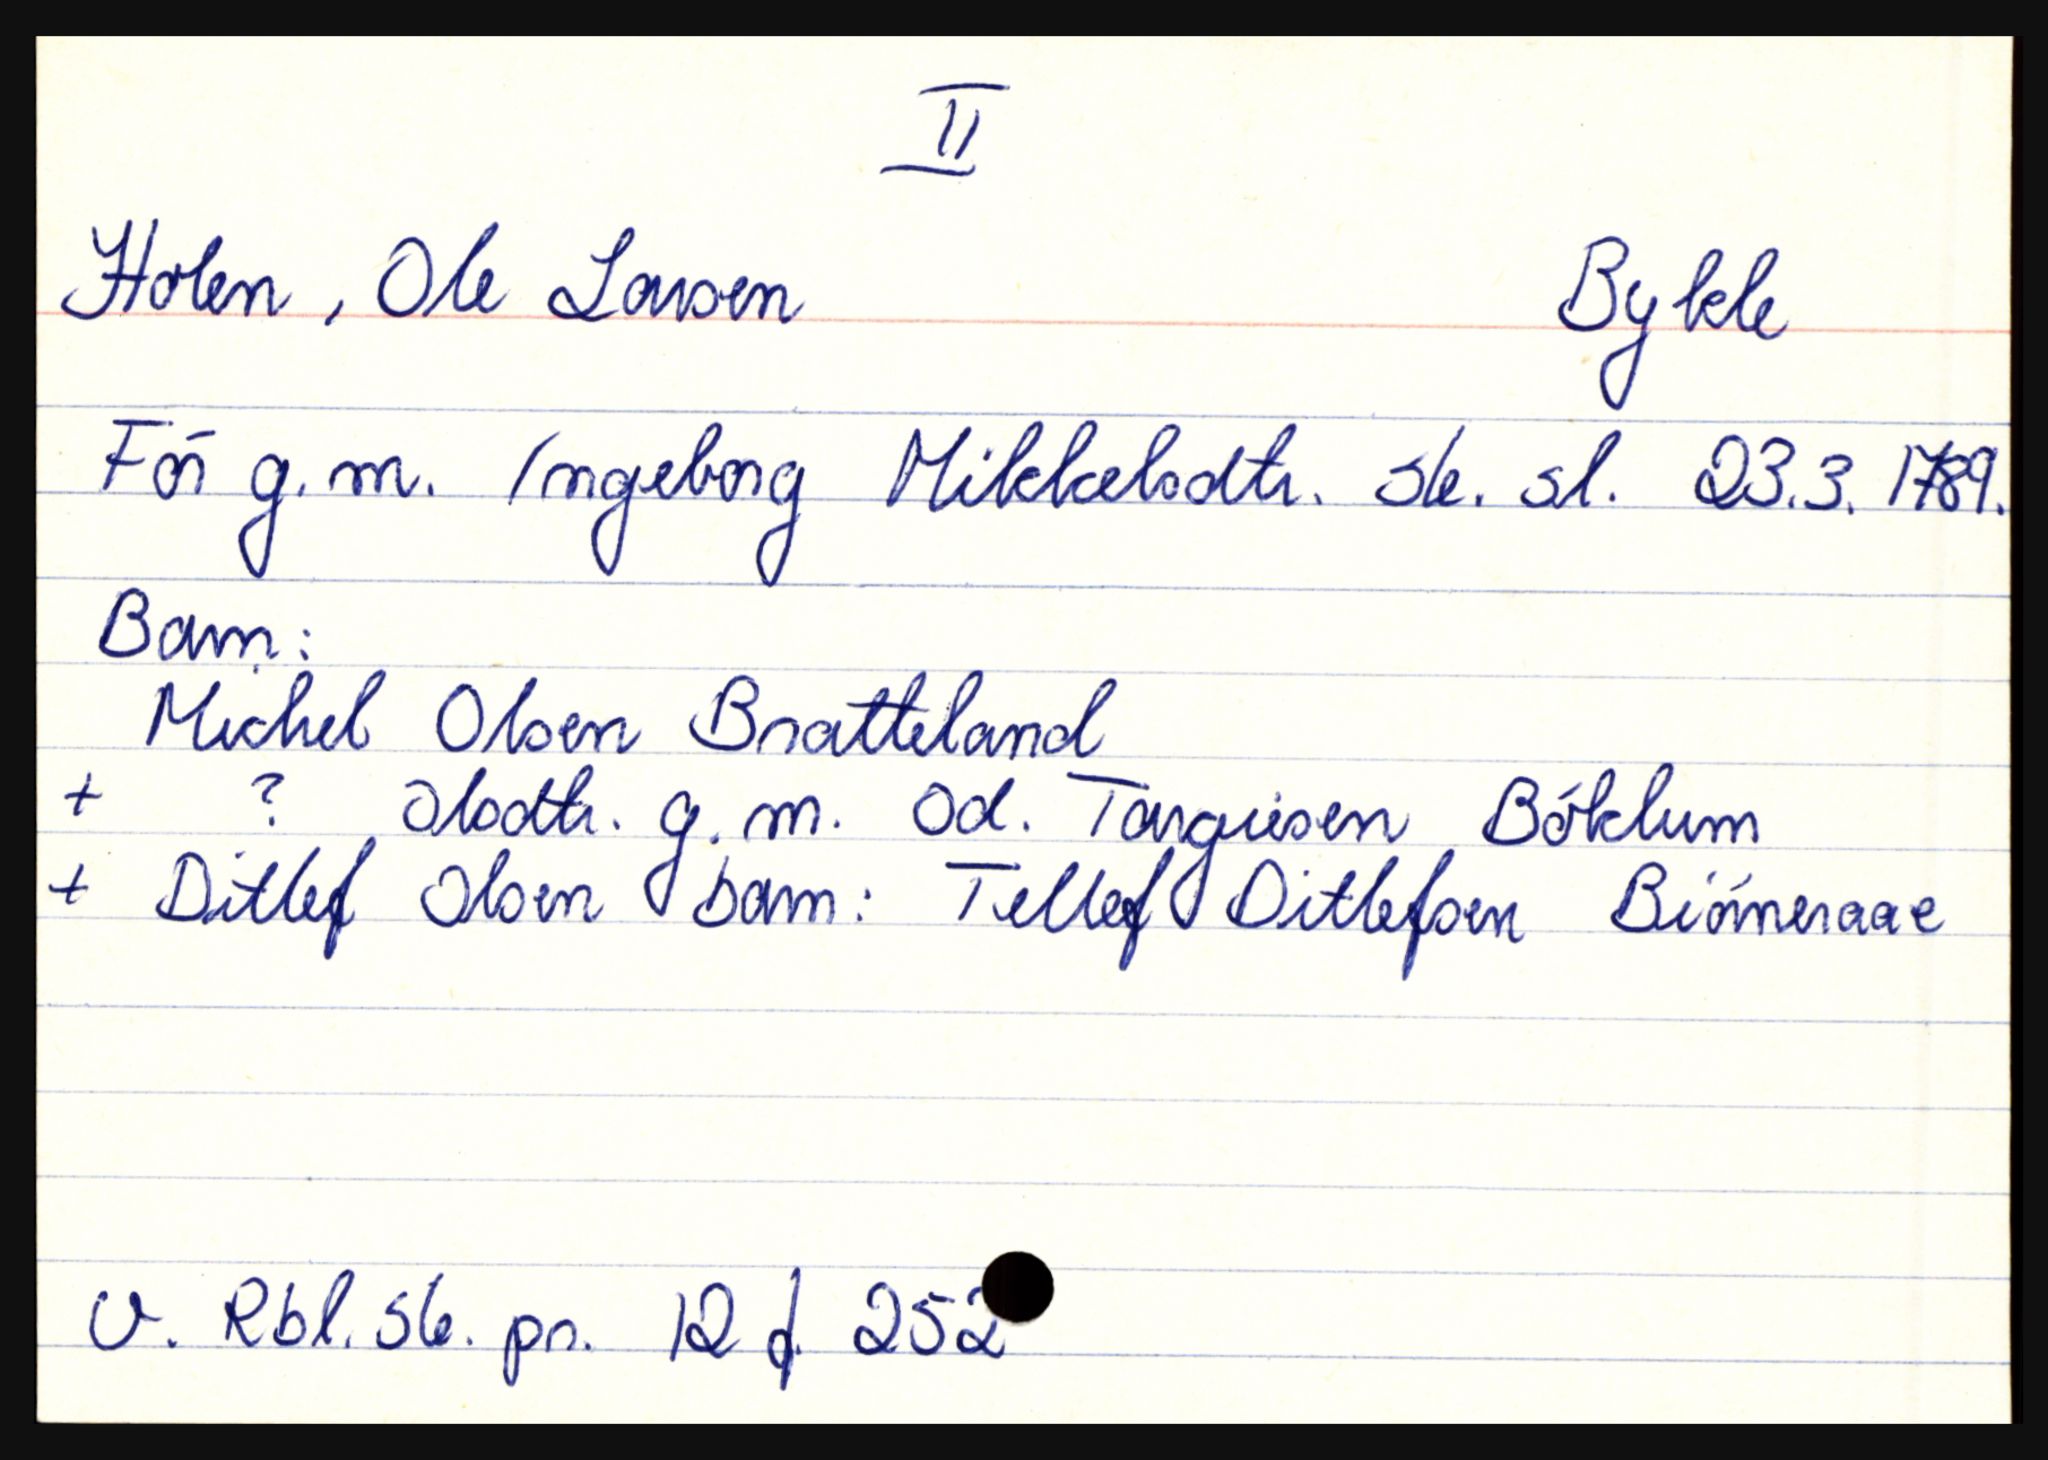 II
Holen, Ole Larsen Bykle
Før g. m. Ingeborg Mikkelsdtr. sk. sl. 23.3. 1789.
Barn:
Michel Olsen Bratteland
+ ? Olsdtr. g. m. Od. Targusen Bóklum
+ Ditlef Olsen barn: Tellef Ditlefsen Biórneraae
V. Rbl. sk. pr. 12 f. 252